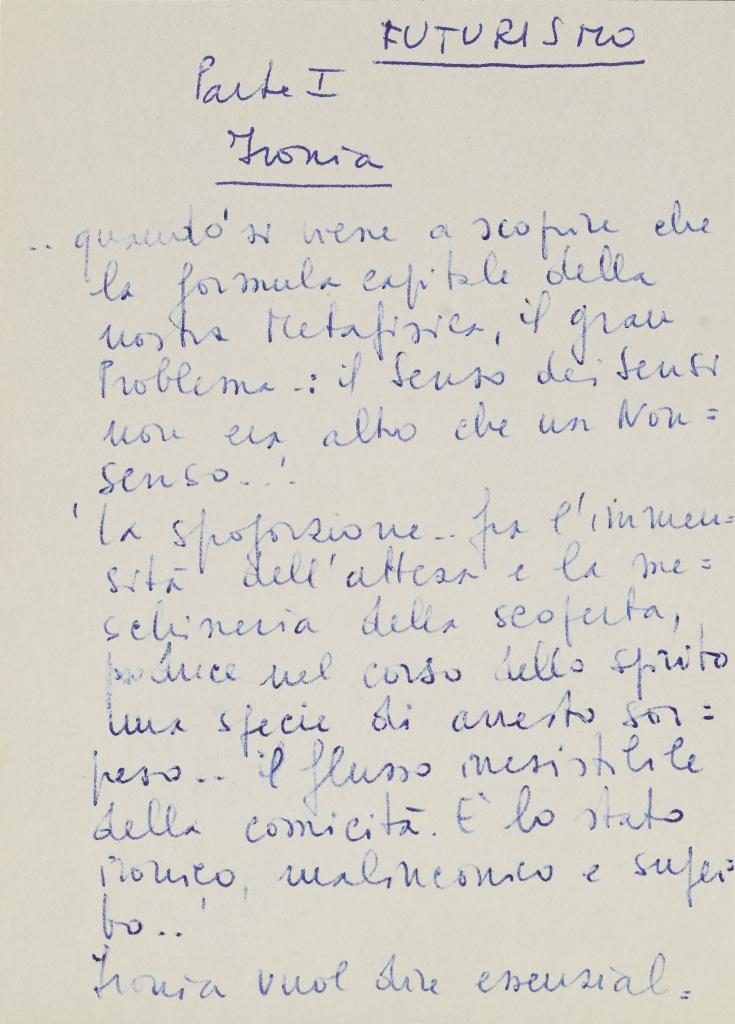 FUTURISMO
Parte I
Ironia
.. quando' si viene a scoprire che
la formula capitale della
nostra Metafisica, il gran
Problema..: il Senso dei Sensi
non era altro che un Non=
senso..'.
'la sproporzione.. fra l'immen=
sità dell'attesa e la me=
schineria della scoperta,
produce nel corso dello spirito
una specie di arresto sor=
preso.. il flusso irresistibile
della comicità. E' lo stato
ironico, malinconico e super=
bo..'
Ironia vuol dire essenzial=